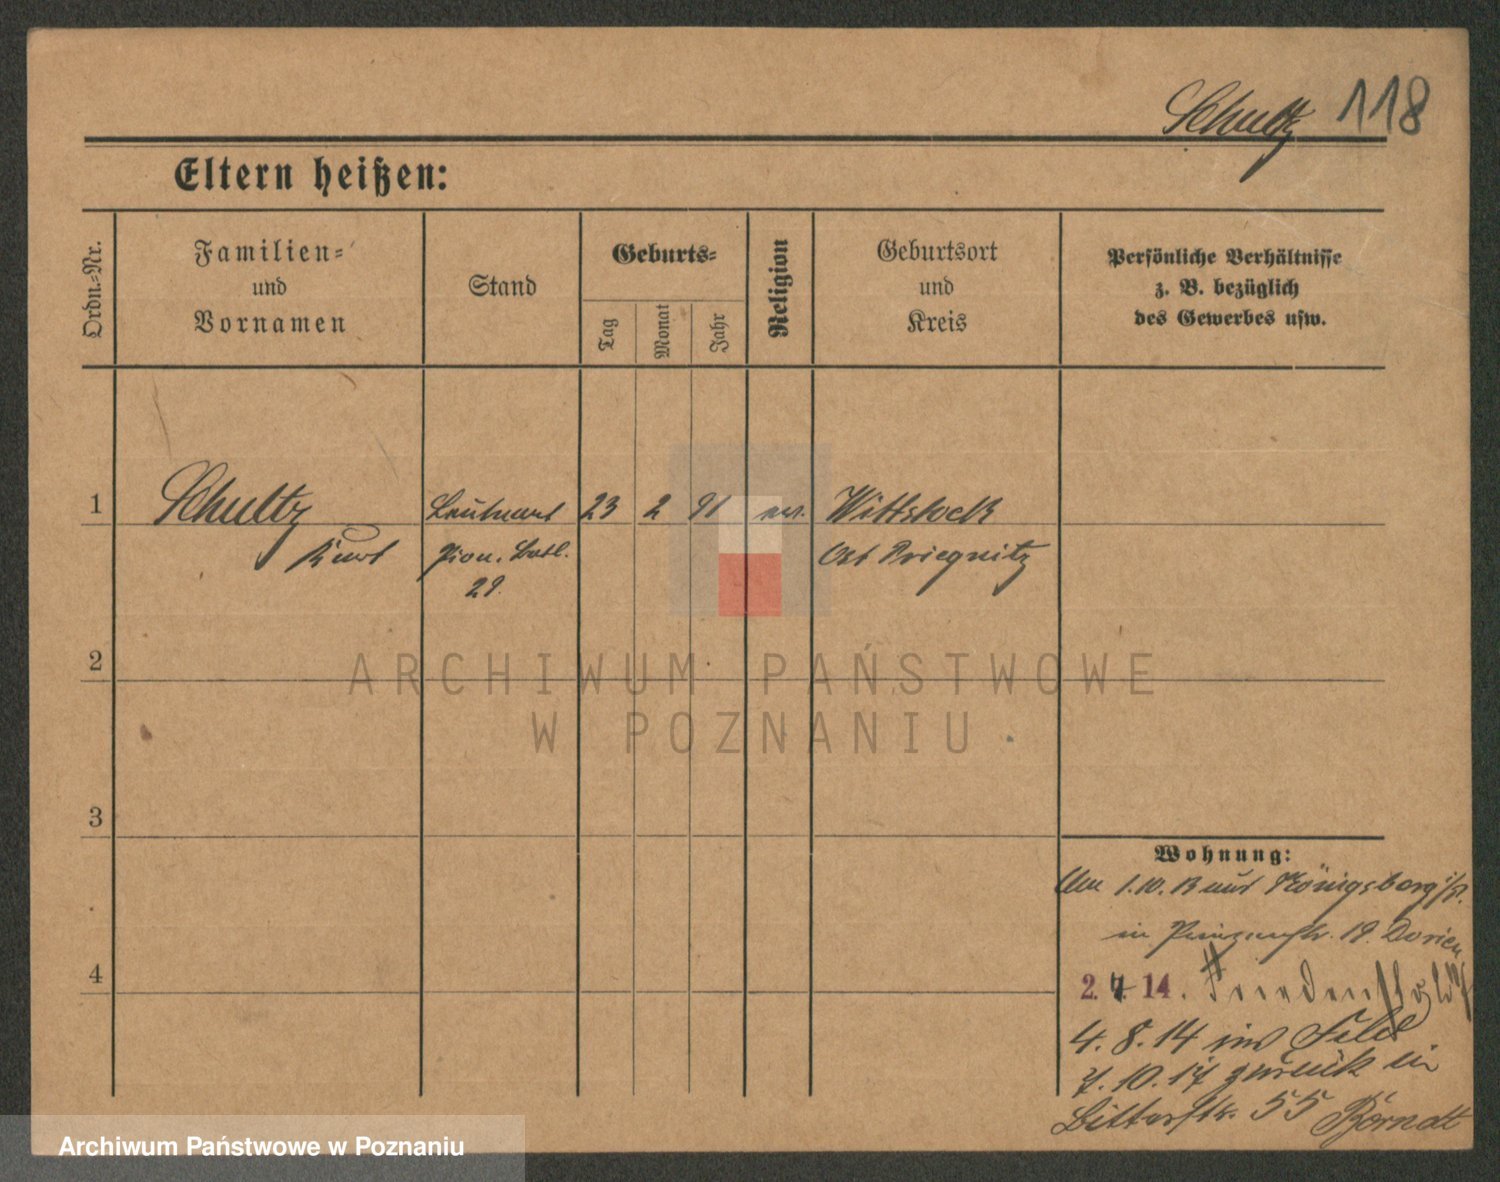 Schultz 118
Eltern heißen:
Ordn.-Nr.
Familien-
und
Vornamen
Stand
Geburts-
Tag
Monat
Jahr
Religion
Geburtsort
und
Kreis
Persönliche Verhältnisse
z. B. bezüglich
des Gewerbes usw.
1 Schultz Leutnant 23 2 91 ev. Wittstock
Kurt Pion. Batl. Ost Priegnitz
29.
2
3
4
Wohnung:
1.10.13 aus Königsberg i/P.
in 19.
2. 14.
4. 8. 14 ins Feld
7. 10. 17 zurück in
Ritterstr. 55
ARCHIWUM PAŃSTWOWE
W POZNANIU
Archiwum Państwowe w Poznaniu